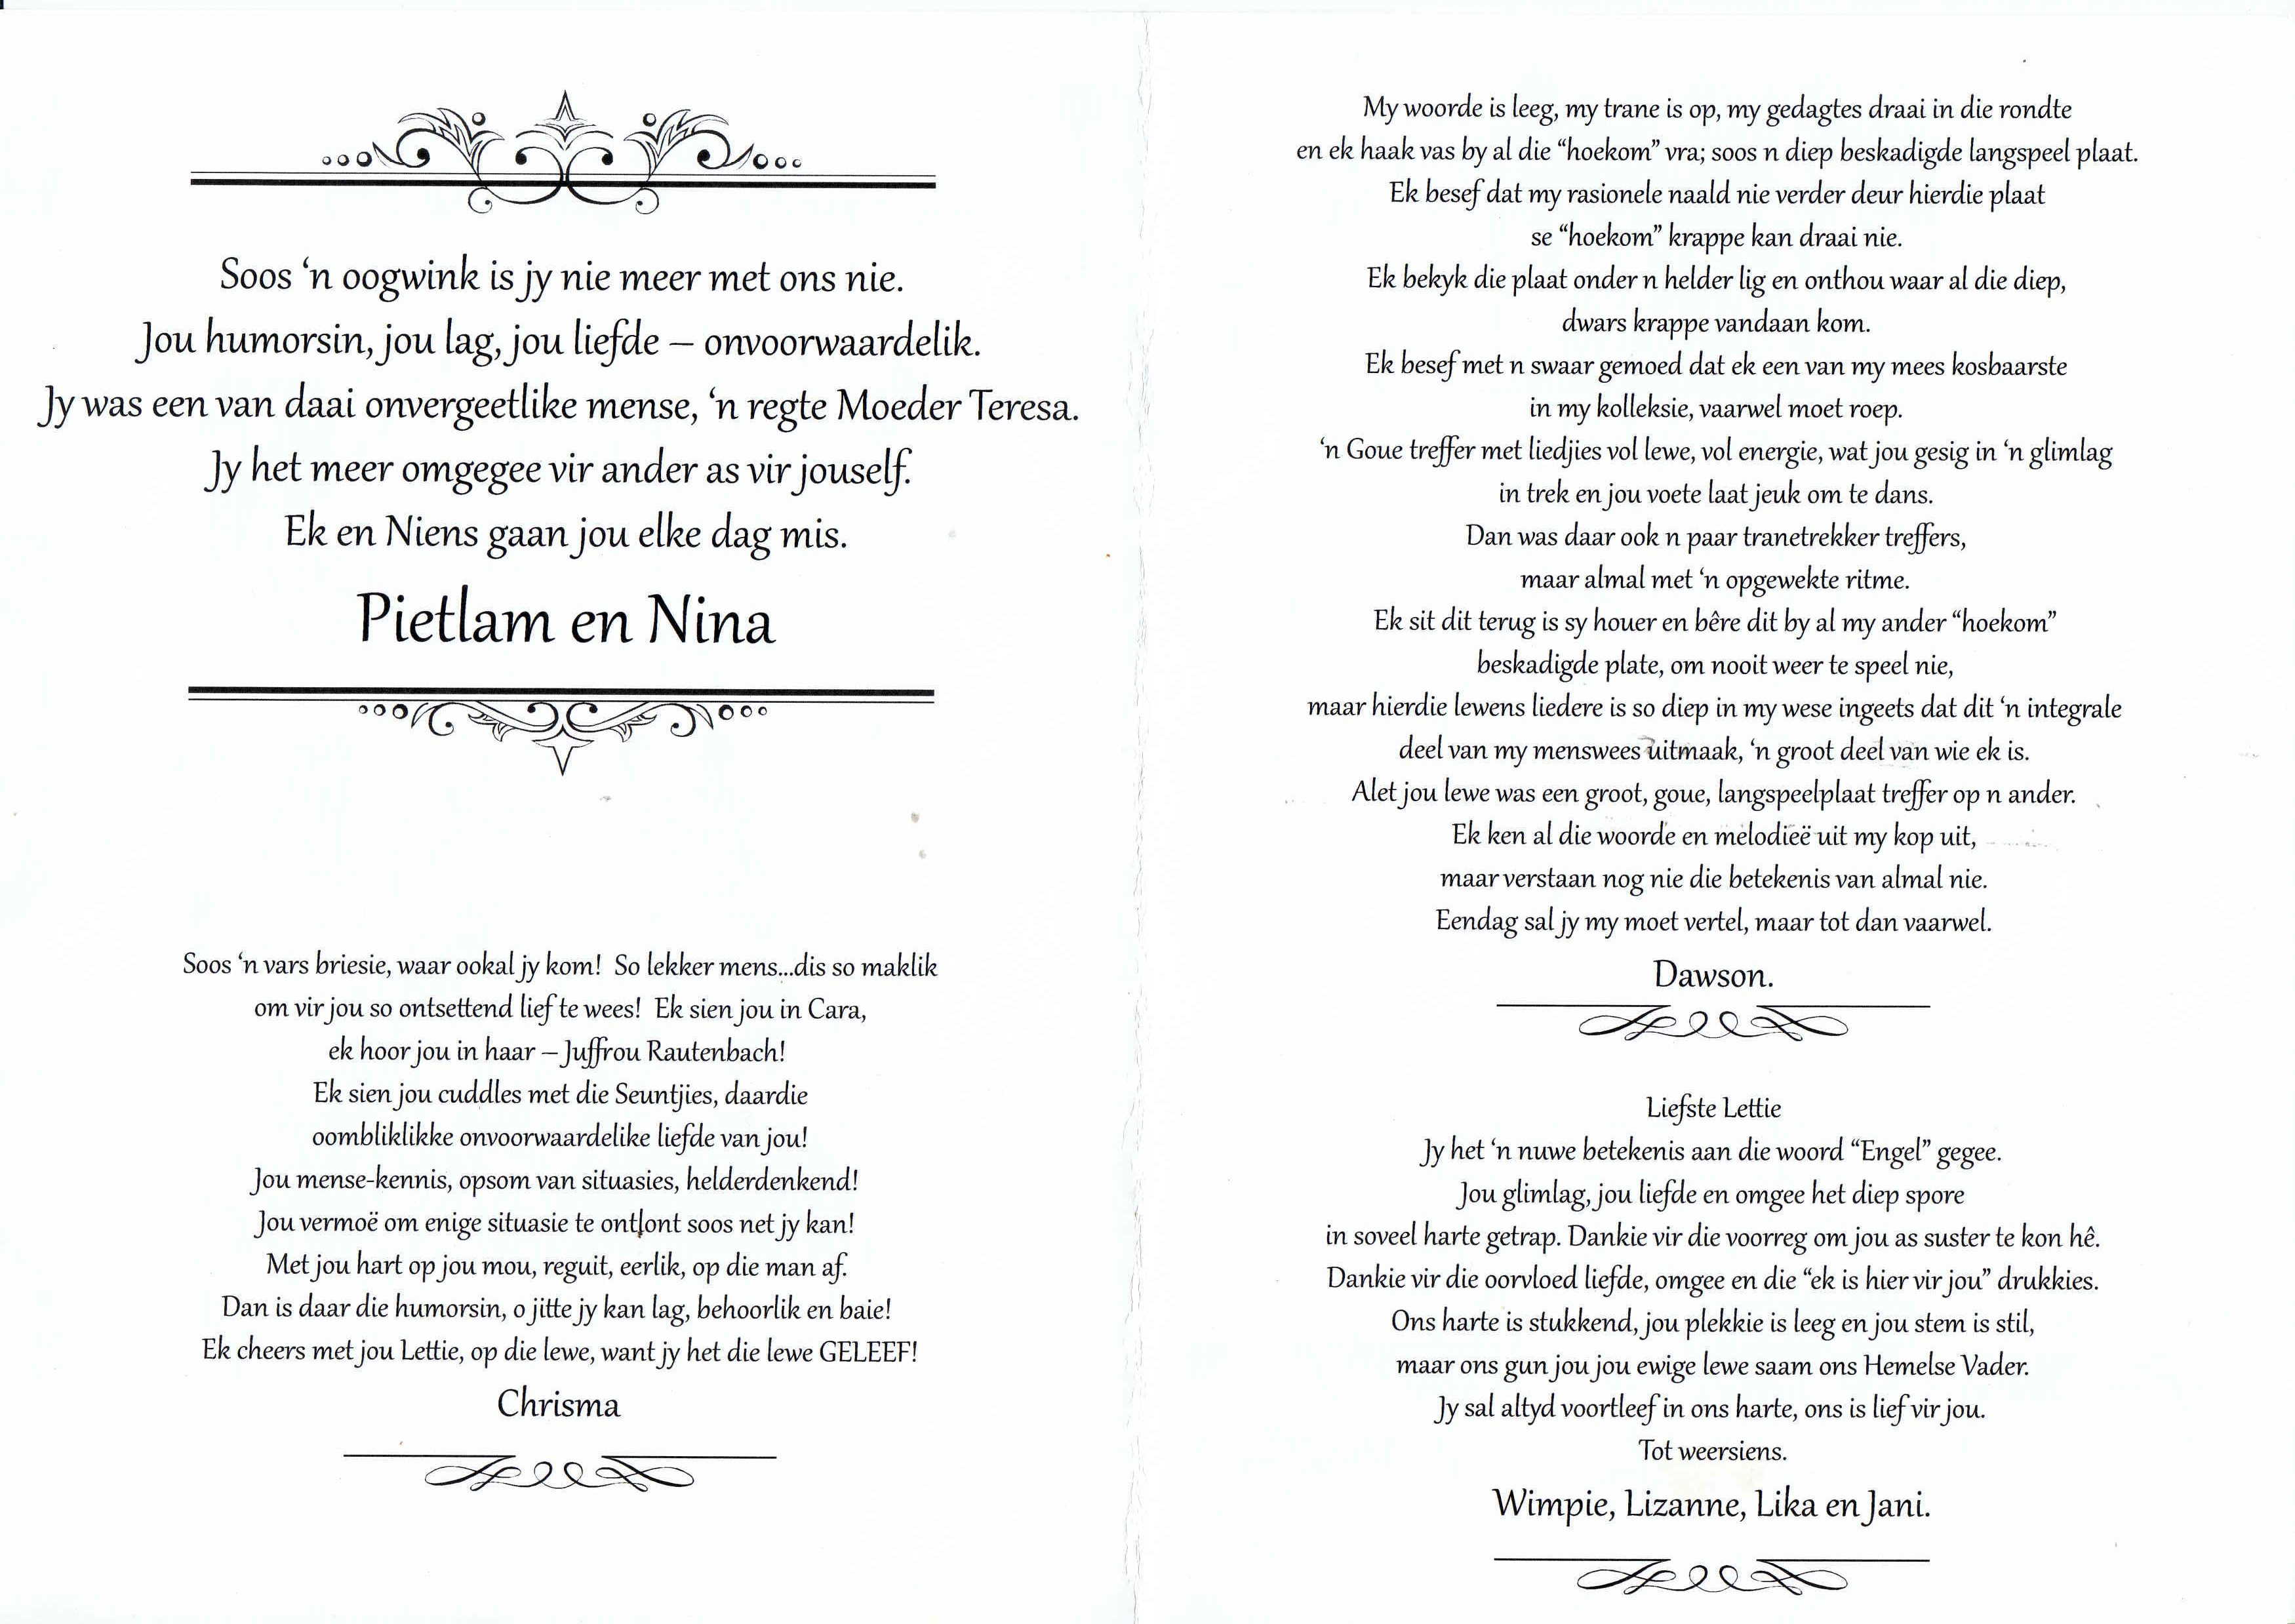 Soos ‘n oogwink is jy nie meer met ons nie.
Jou humorsin, jou lag, jou liefde – onvoorwaardelik.
Jy was een van daai onvergeetlike mense, ‘n regte Moeder Teresa.
Jy het meer omgegee vir ander as vir jouself.
Ek en Niens gaan jou elke dag mis.
Pietlam en Nina
Soos ‘n vars briesie, waar ookal jy kom!  So lekker mens...dis so maklik
om vir jou so ontsettend lief te wees!  Ek sien jou in Cara,
ek hoor jou in haar – Juffrou Rautenbach!
Ek sien jou cuddles met die Seuntjies, daardie
oombliklikke onvoorwaardelike liefde van jou!
Jou mense-kennis, opsom van situasies, helderdenkend!
Jou vermoë om enige situasie te ontlont soos net jy kan!
Met jou hart op jou mou, reguit, eerlik, op die man af.
Dan is daar die humorsin, o jitte jy kan lag, behoorlik en baie!
Ek cheers met jou Lettie, op die lewe, want jy het die lewe GELEEF!
Chrisma
My woorde is leeg, my trane is op, my gedagtes draai in die rondte
en ek haak vas by al die “hoekom” vra; soos n diep beskadigde langspeel plaat.
Ek besef dat my rasionele naald nie verder deur hierdie plaat
se “hoekom” krappe kan draai nie.
Ek bekyk die plaat onder n helder lig en onthou waar al die diep,
dwars krappe vandaan kom.
Ek besef met n swaar gemoed dat ek een van my mees kosbaarste
in my kolleksie, vaarwel moet roep.
‘n Goue treffer met liedjies vol lewe, vol energie, wat jou gesig in ‘n glimlag
in trek en jou voete laat jeuk om te dans.
Dan was daar ook n paar tranetrekker treffers,
maar almal met ‘n opgewekte ritme.
Ek sit dit terug is sy houer en bêre dit by al my ander “hoekom”
beskadigde plate, om nooit weer te speel nie,
maar hierdie lewens liedere is so diep in my wese ingeets dat dit ‘n integrale
deel van my menswees uitmaak, ‘n groot deel van wie ek is.
Alet jou lewe was een groot, goue, langspeelplaat treffer op n ander.
Ek ken al die woorde en melodieë uit my kop uit,
maar verstaan nog nie die betekenis van almal nie.
Eendag sal jy my moet vertel, maar tot dan vaarwel.
Dawson.
Liefste Lettie
Jy het ‘n nuwe betekenis aan die woord “Engel” gegee.
Jou glimlag, jou liefde en omgee het diep spore
in soveel harte getrap. Dankie vir die voorreg om jou as suster te kon hê.
Dankie vir die oorvloed liefde, omgee en die “ek is hier vir jou” drukkies.
Ons harte is stukkend, jou plekkie is leeg en jou stem is stil,
maar ons gun jou jou ewige lewe saam ons Hemelse Vader.
Jy sal altyd voortleef in ons harte, ons is lief vir jou.
Tot weersiens.
Wimpie, Lizanne, Lika en Jani.